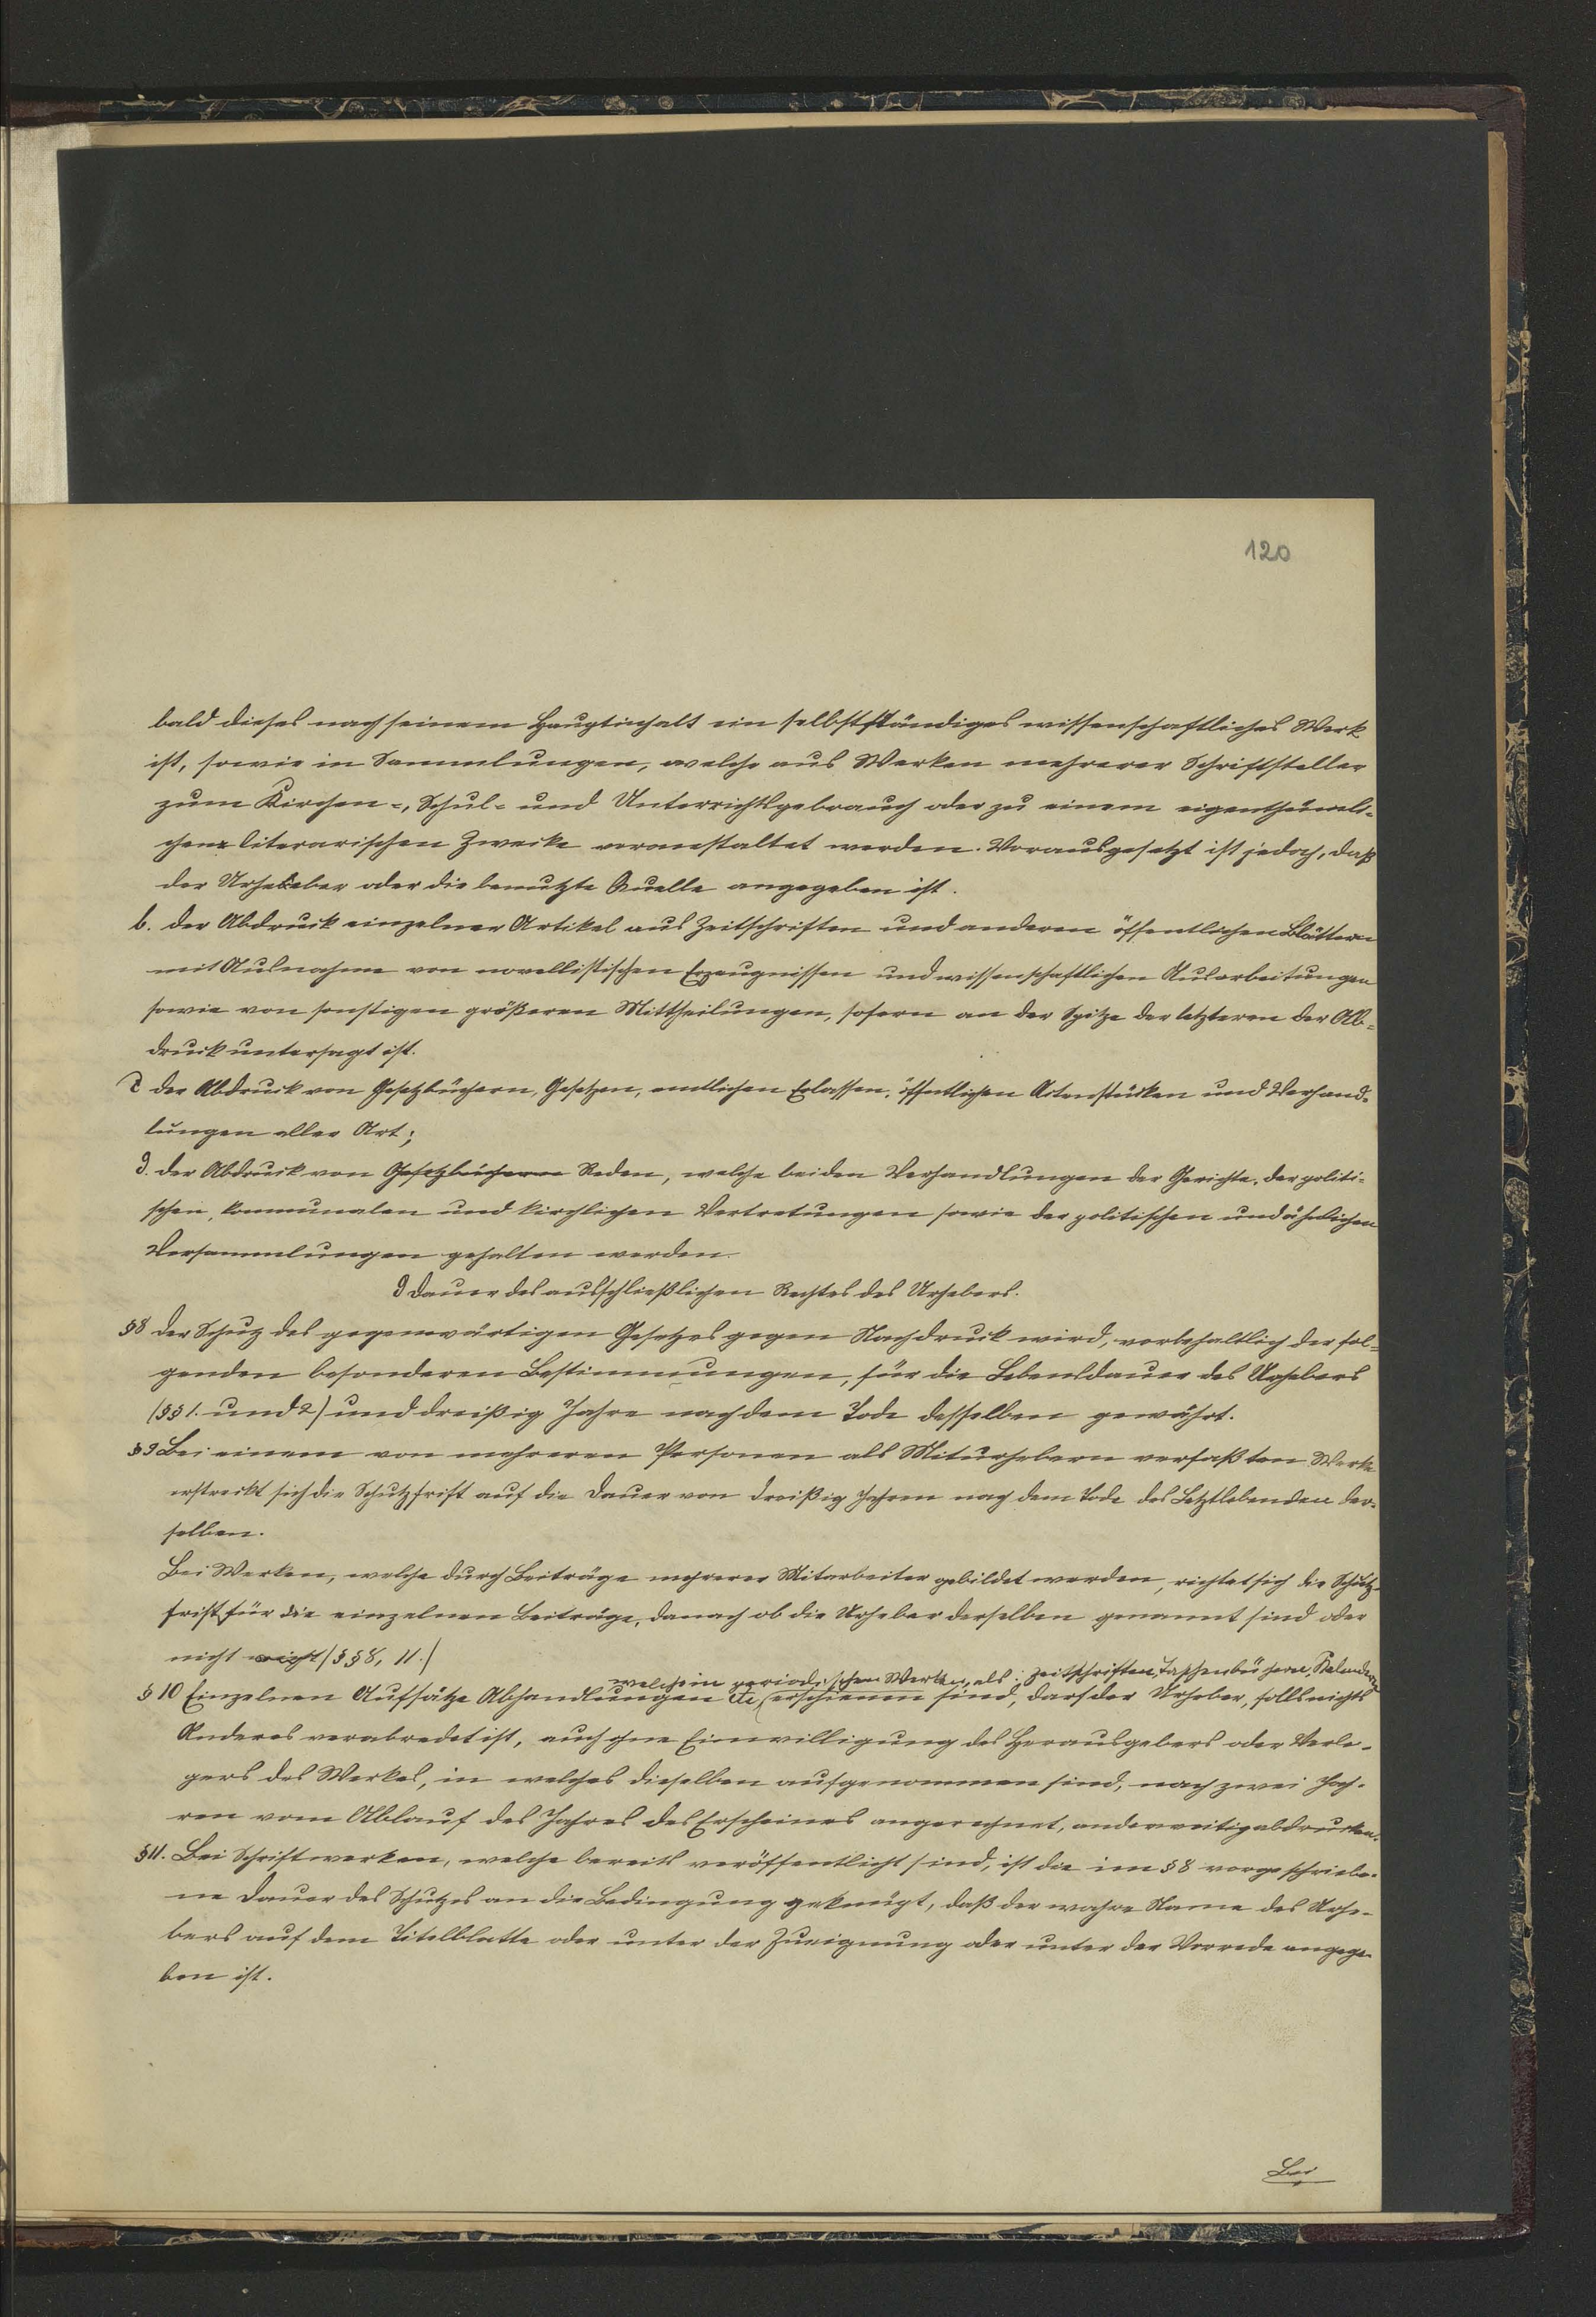 120
bald dieses nach seinem Hauptinhalt ein selbstständiges wissenschaftliches Werk
ist, sowie in Sammlungen, welche aus Werken mehrerer Schriftsteller
zum Kirchen-, Schul- und Unterrichtsgebrauch oder zu einem eigenthümli-
chen literarischen Zwecke veranstaltet werden. Vorausgesetzt ist jedoch, daß
der Urheber oder die benutzte Quelle angegeben ist.
b. der Abdruck einzelner Artikel aus Zeitschriften und anderen öffentlichen Blättern
mit Ausnahme von novellistischen Erzeugnissen und wissenschaftlichen Ausarbeitungen
sowie von sonstigen größeren Mittheilungen, sofern an der Spitze der letzteren der Ab-
druck untersagt ist.
c der Abdruck von Gesetzbüchern, Gesetzen, amtlichen Erlassen, öffentlichen Actenstücken und Verhand-
lungen aller Art;
d. der Abdruck von Gesetzbüchern Reden, welche bei den Verhandlungen der Gerichte, der politi-
schen, kommunalen und kirchlichen Vertretungen sowie der politischen und ähnlichen
Versammlungen gehalten werden.
d Dauer des ausschließlichen Rechtes des Urhebers.
§8 Der Schuz des gegenwärtigen Gesetzes gegen Nachdruck wird, vorbehaltlich der fol-
genden besonderen Bestimmungen, für die Lebensdauer des Urhebers
(§§ 1. und 2) und dreißig Jahre nach dem Tode desselben gewährt.
§9 Bei einem von mehreren Personen als Miturhebern verfaßten Werke
erstreckt sich die Schutzfrist auf die Dauer von dreißig Jahren nach dem Tode des Letztlebenden der-
selben.
Bei Werken, welche durch Beiträge mehrerer Mitarbeiter gebildet werden, richtet sich die Schutz-
frist für die einzelnen Beiträge, danach ob die Urheber derselben genannt sind oder
nicht nicht (§§8, 11.)
welche in periodischen Werken, als: Zeitschriften, Taschenbüchern, Kalendern
§ 10 Einzelnen Aufsätze Abhandlungen etc, erschienen sind, darf der Urheber, falls nichts
Anderes verabredet ist, auch ohne Einwilligung des Herausgebers oder Verle-
gers des Werkes, in welches dieselben aufgenommen sind, nach zwei Jah-
ren vom Ablauf des Jahres des Erscheines angerechnet, anderweitig abdrucken.
§11. Bei Schriftwerken, welche bereits veröffentlicht sind, ist die im § 8 vorgeschriebe-
ne Dauer des Schutzes an die Bedingung geknüpft, daß der wahre Name des Urhe-
bers auf dem Titelblatte oder unter der Zueignung oder unter der Vorrede angege-
ben ist.
Bei